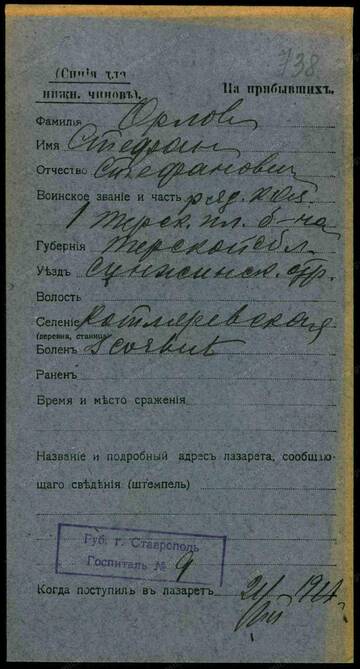 738
(Синія для
нижн. чиновъ).
На прибывшихъ.
Фамилія Орловъ
Имя Стефан
Отчество Стефанович
Воинское званіе и часть ряд. каз.
1 Терск. пл. б-на
Губернія Терской обл.
Уѣздъ Сунженск. отр.
Волость
Селеніе Котляревская
(деревня, станица)
Боленъ Scorbut
Раненъ
Время и мѣсто сраженія
Названіе и подробный адресъ лазарета, сообщаю-
щаго свѣдѣнія (штемпель)
Губ. г. Ставрополь
Госпиталь № 9
Когда поступилъ въ лазаретъ